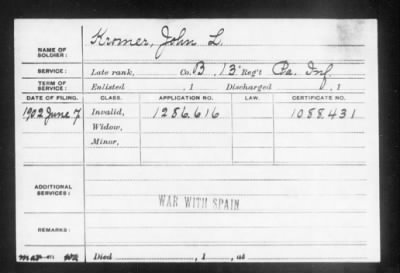 NAME OF SOLDIER: Kromer, John L.
SERVICE: Late rank, Co. B, 13" Reg't Pa. Inf
TERM OF SERVICE: Enlisted , 1 Discharged , 1
DATE OF FILING. CLASS. APPLICATION NO. LAW. CERTIFICATE NO.
1902 June 7 Invalid, 1286.616 1088.431
Widow,
Minor,
ADDITIONAL SERVICES:
WAR WITH SPAIN
REMARKS:
Died , 1 , at